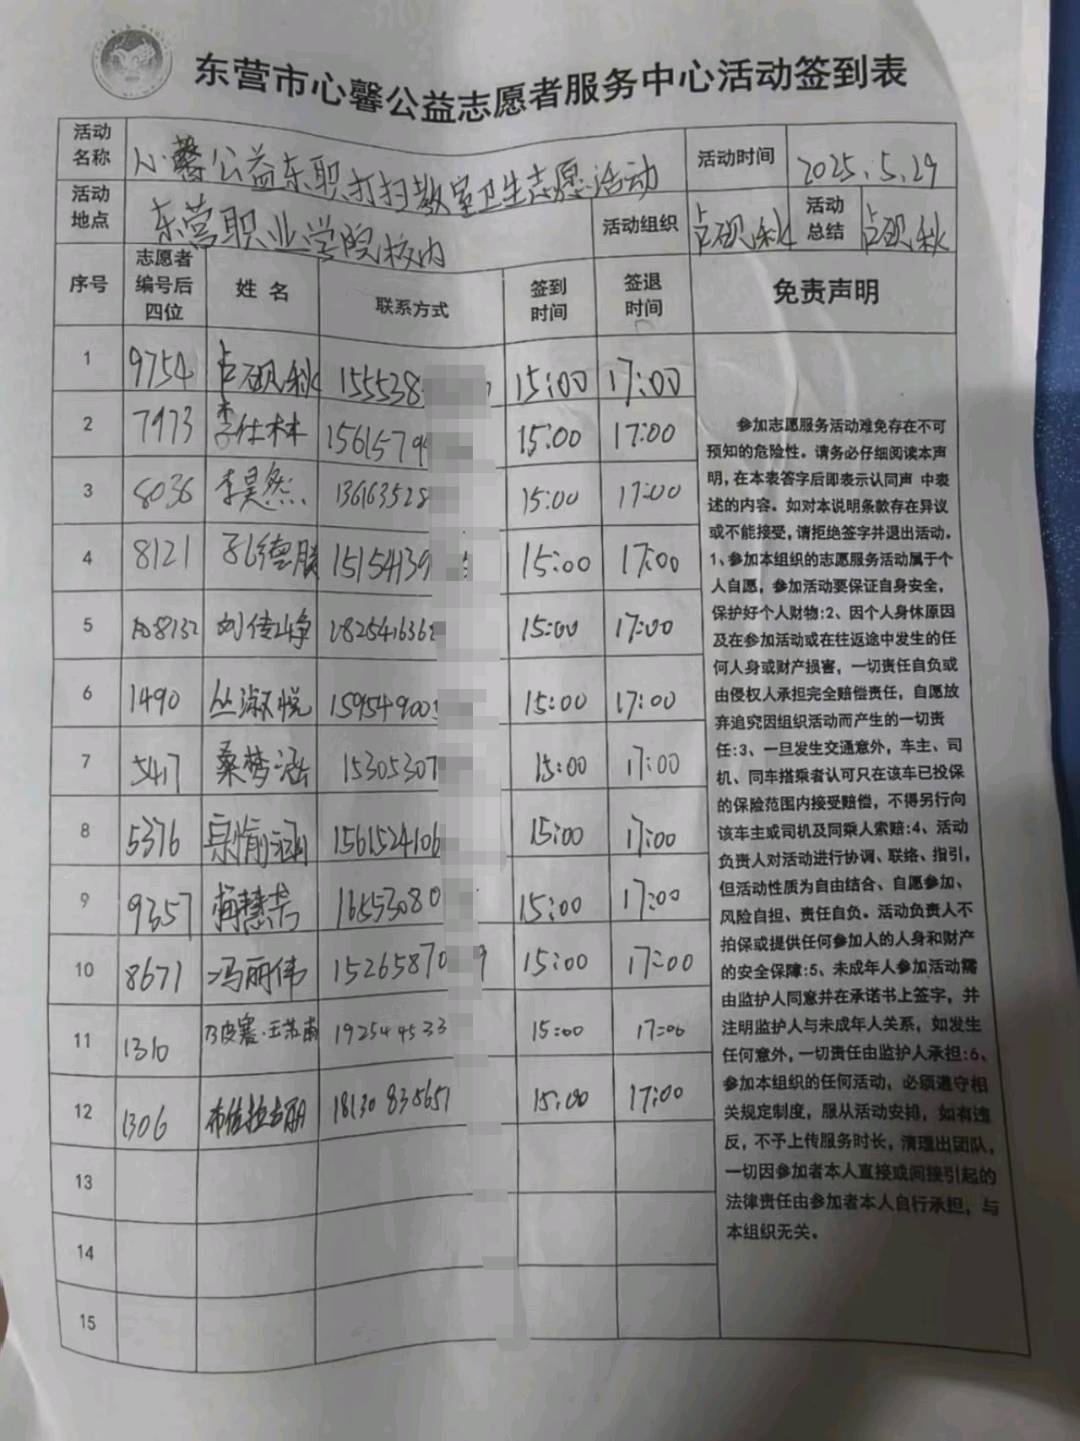 东营市心馨公益志愿者服务中心活动签到表
活动名称 心馨公益东职打扫教室卫生志愿活动 活动时间 2025.5.29
活动地点 东营职业学院校内 活动组织 占砚秋 活动总结 占砚秋
序号 志愿者编号后四位 姓名 联系方式 签到时间 签退时间 免责声明
1 9754 占砚秋 155538 15:00 17:00
2 7973 李仕林 1561579 15:00 17:00
3 8036 李昊然 136163528 15:00 17:00
4 8121 孔德胜 15154139 15:00 17:00
5 8132 刘传峥 1825416362 15:00 17:00
6 1490 丛淑悦 159549005 15:00 17:00
7 5417 桑梦涵 15305307 15:00 17:00
8 5376 涵 1561524106 15:00 17:00
9 9357 慧 16553080 15:00 17:00
10 8671 冯丽伟 15265870 9 15:00 17:00
11 1310 乃皮塞·王苏甫 192544533 15:00 17:00
12 1306 布佐拉古丽 18130835651 15:00 17:00
13
14
15
参加志愿服务活动难免存在不可
预知的危险性。请务必仔细阅读本声
明,在本表签字后即表示认同声 中表
述的内容。如对本说明条款存在异议
或不能接受,请拒绝签字并退出活动。
1、参加本组织的志愿服务活动属于个
人自愿,参加活动要保证自身安全,
保护好个人财物:2、因个人身休原因
及在参加活动或在往返途中发生的任
何人身或财产损害,一切责任自负或
由侵权人承担完全赔偿责任,自愿放
弃追究因组织活动而产生的一切责
任:3、一旦发生交通意外,车主、司
机、同车搭乘者认可只在该车已投保
的保险范围内接受赔偿,不得另行向
该车主或司机及同乘人索赔:4、活动
负责人对活动进行协调、联络、指引,
但活动性质为自由结合、自愿参加、
风险自担、责任自负。活动负责人不
拍保或提供任何参加人的人身和财产
的安全保障:5、未成年人参加活动需
由监护人同意并在承诺书上签字,并
注明监护人与未成年人关系,如发生
任何意外,一切责任由监护人承担:6、
参加本组织的任何活动,必须遵守相
关规定制度,服从活动安排,如有违
反,不予上传服务时长,清理出团队,
一切因参加者本人直接或间接引起的
法律责任由参加者本人自行承担,与
本组织无关。